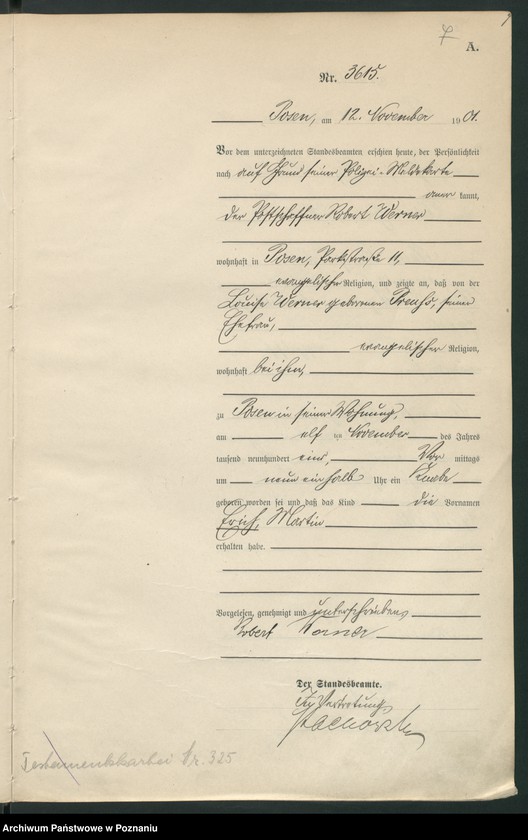 A.
Nr. 3615.
Posen, am 12. November 1901.
Vor dem unterzeichneten Standesbeamten erschien heute, der Persönlichkeit
nach auf Grund seiner Polizei-Meldekarte
kannt,
der Postschaffner Robert Werner
wohnhaft in Posen, Parkstraße 11,
evangelischer Religion, und zeigte an, daß von der
Louise Werner geborenen Preuß, seiner
Ehefrau,
evangelischer Religion,
wohnhaft bei ihm,
zu Posen in seiner Wohnung,
am elf ten November des Jahres
tausend neunhundert eins, Vor mittags
um neun einhalb Uhr ein Knabe
geboren worden sei und daß das Kind die Vornamen
Erich, Martin
erhalten habe.
Vorgelesen, genehmigt und unterschrieben
Robert Werner
Der Standesbeamte.
In Vertretung
Testamentskartei Nr. 325
Archiwum Państwowe w Poznaniu